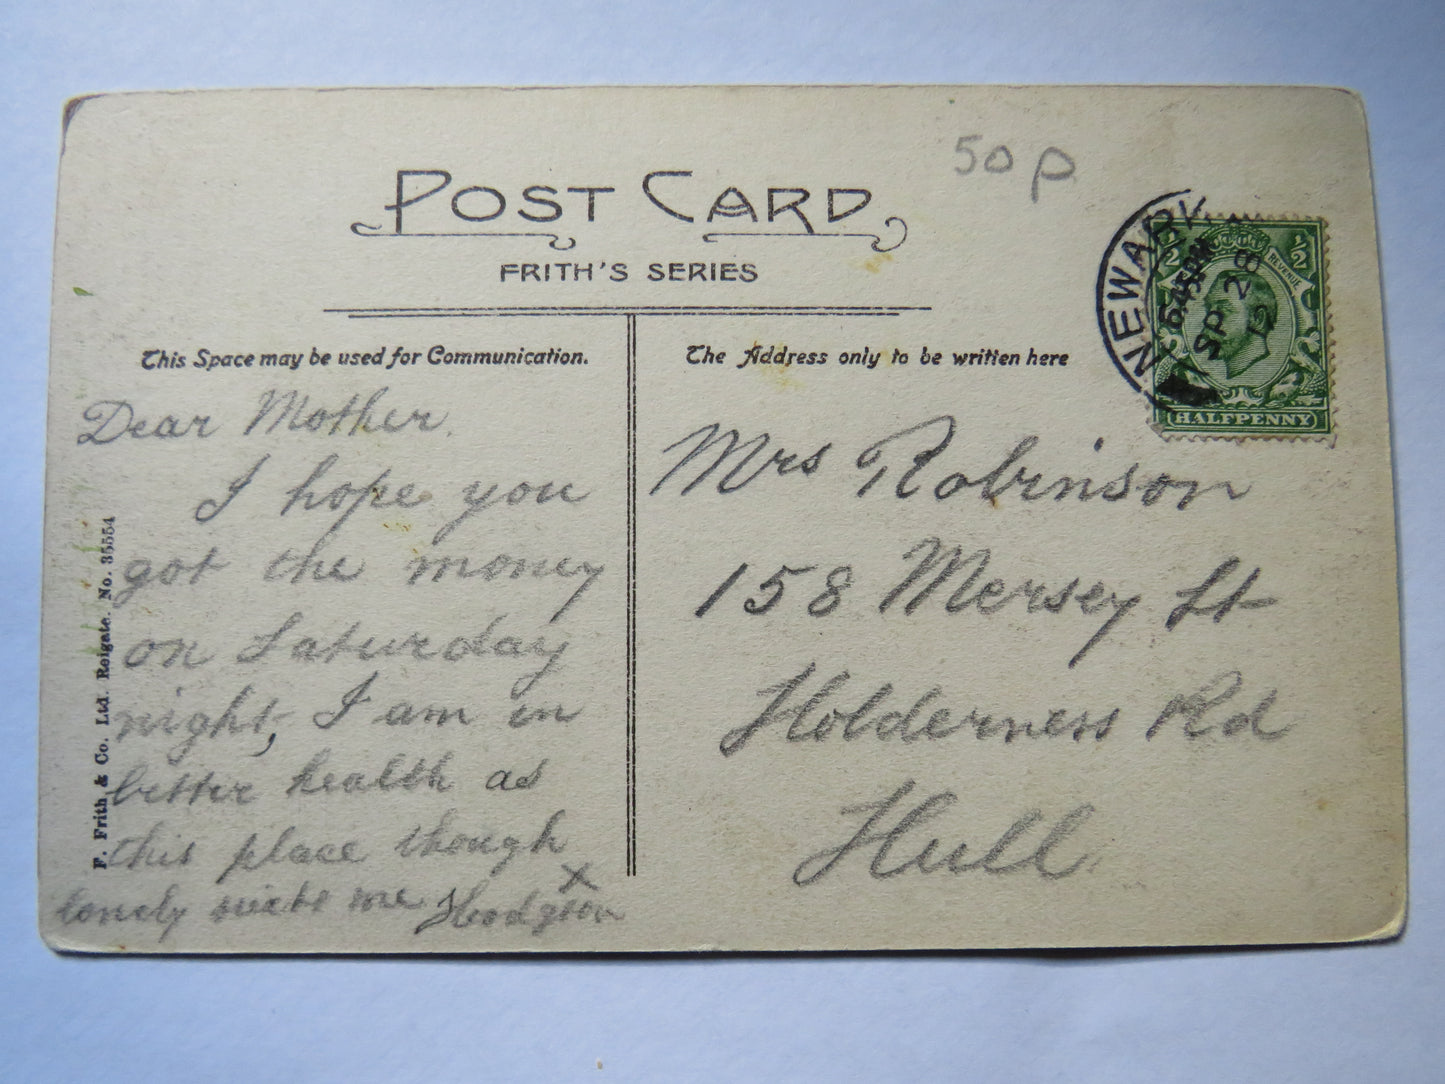 50p
POST CARD
FRITH'S SERIES
This Space may be used for Communication.
The Address only to be written here
NEWARK
6.45PM
SP 28
12
REVENUE
½ ½
HALFPENNY
Dear Mother.
I hope you
got the money
on Saturday
night, I am in
better health as
this place though
lonely suits me Hodgson
x
Mrs Robinson
158 Mersey St
Holderness Rd
Hull
F. Frith & Co. Ltd. Reigate. No. 35554